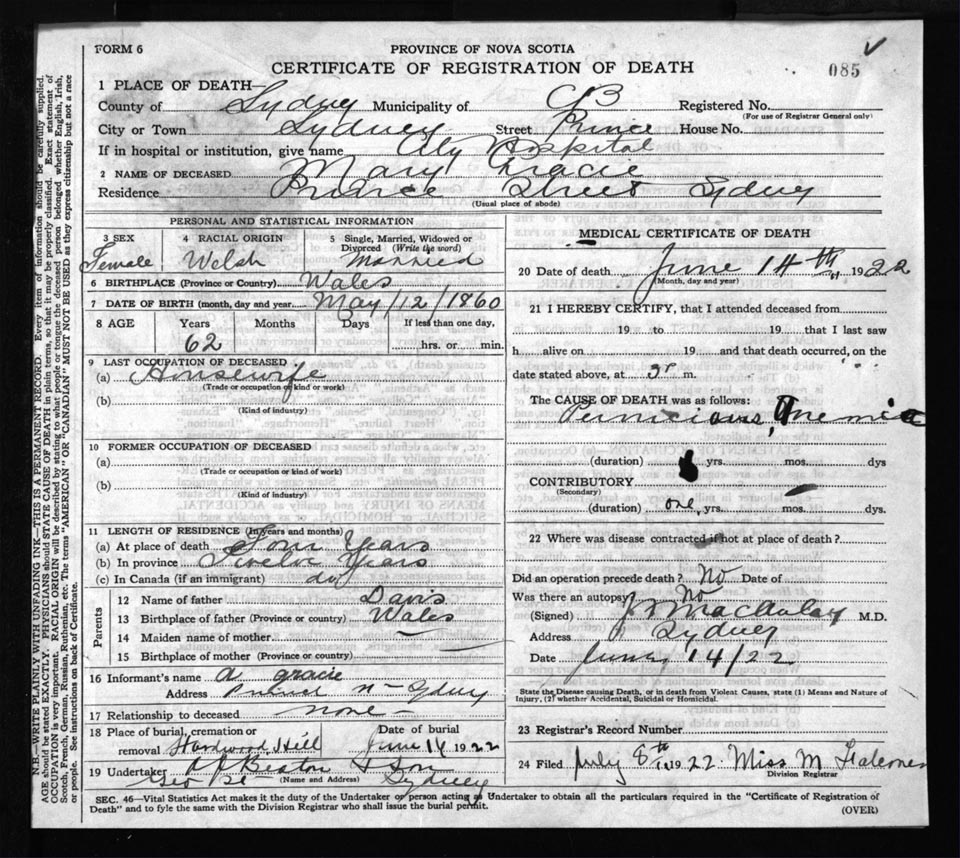 FORM 6
PROVINCE OF NOVA SCOTIA
CERTIFICATE OF REGISTRATION OF DEATH
085
1 PLACE OF DEATH—
County of Sydney Municipality of CB Registered No.
(For use of Registrar General only)
City or Town Sydney Street Prince House No.
If in hospital or institution, give name City Hospital
2 NAME OF DECEASED Mary Gracie
Residence Street Sydney
(Usual place of abode)
PERSONAL AND STATISTICAL INFORMATION
3 SEX 4 RACIAL ORIGIN 5 Single, Married, Widowed or Divorced (Write the word)
Female Welsh Married
6 BIRTHPLACE (Province or Country) Wales
7 DATE OF BIRTH (month, day and year) May/12/1860
8 AGE Years Months Days If less than one day,
62 hrs. or min.
9 LAST OCCUPATION OF DECEASED
(a) Housewife
(Trade or occupation or kind or work)
(b)
(Kind of industry)
10 FORMER OCCUPATION OF DECEASED
(a)
(Trade or occupation or kind of work)
(b)
(Kind of industry)
11 LENGTH OF RESIDENCE (In years and months)
(a) At place of death Four Years
(b) In province Twelve Years
(c) In Canada (if an immigrant) do
Parents
12 Name of father Davis
13 Birthplace of father (Province or country) Wales
14 Maiden name of mother
15 Birthplace of mother (Province or country)
16 Informant's name A Gracie
Address Sydney
17 Relationship to deceased none
18 Place of burial, cremation or Date of burial
removal Hardwood Hill June 16 1922
19 Undertaker A J Beaton & Son
(Name and Address)
Geo St Sydney
MEDICAL CERTIFICATE OF DEATH
20 Date of death June 14th, 1922
(Month, day and year)
21 I HEREBY CERTIFY, that I attended deceased from
19 to 19 that I last saw
h alive on 19 and that death occurred, on the
date stated above, at m.
The CAUSE OF DEATH was as follows:
Pernicious Anemia
(duration) yrs. mos. dys
CONTRIBUTORY
(Secondary)
(duration) one yrs. mos. dys.
22 Where was disease contracted if not at place of death?
Did an operation precede death? No Date of
Was there an autopsy No
(Signed) MacAulay M.D.
Address Sydney
Date June 14/22
State the Disease causing Death, or in death from Violent Causes, state (1) Means and Nature of
Injury, (2) whether Accidental, Suicidal or Homicidal.
23 Registrar's Record Number
24 Filed July 8th 1922 Miss M Falconer
Division Registrar
SEC. 46—Vital Statistics Act makes it the duty of the Undertaker or person acting as Undertaker to obtain all the particulars required in the "Certificate of Registration of
Death" and to fyle the same with the Division Registrar who shall issue the burial permit.
(OVER)
N.B.—WRITE PLAINLY WITH UNFADING INK—THIS IS A PERMANENT RECORD. Every item of information should be carefully supplied.
AGE should be stated EXACTLY. PHYSICIANS should STATE CAUSE OF DEATH in plain terms, so that it may be properly classified. Exact statement of
OCCUPATION is very important. RACIAL ORIGIN will be described by stating to what people or tongue the deceased person belonged whether English, Irish,
Scotch, French, German, Russian, Ruthenian, etc. The terms "AMERICAN" OR "CANADIAN" MUST NOT BE USED as they express citizenship but not a race
or people. See instructions on back of Certificate.